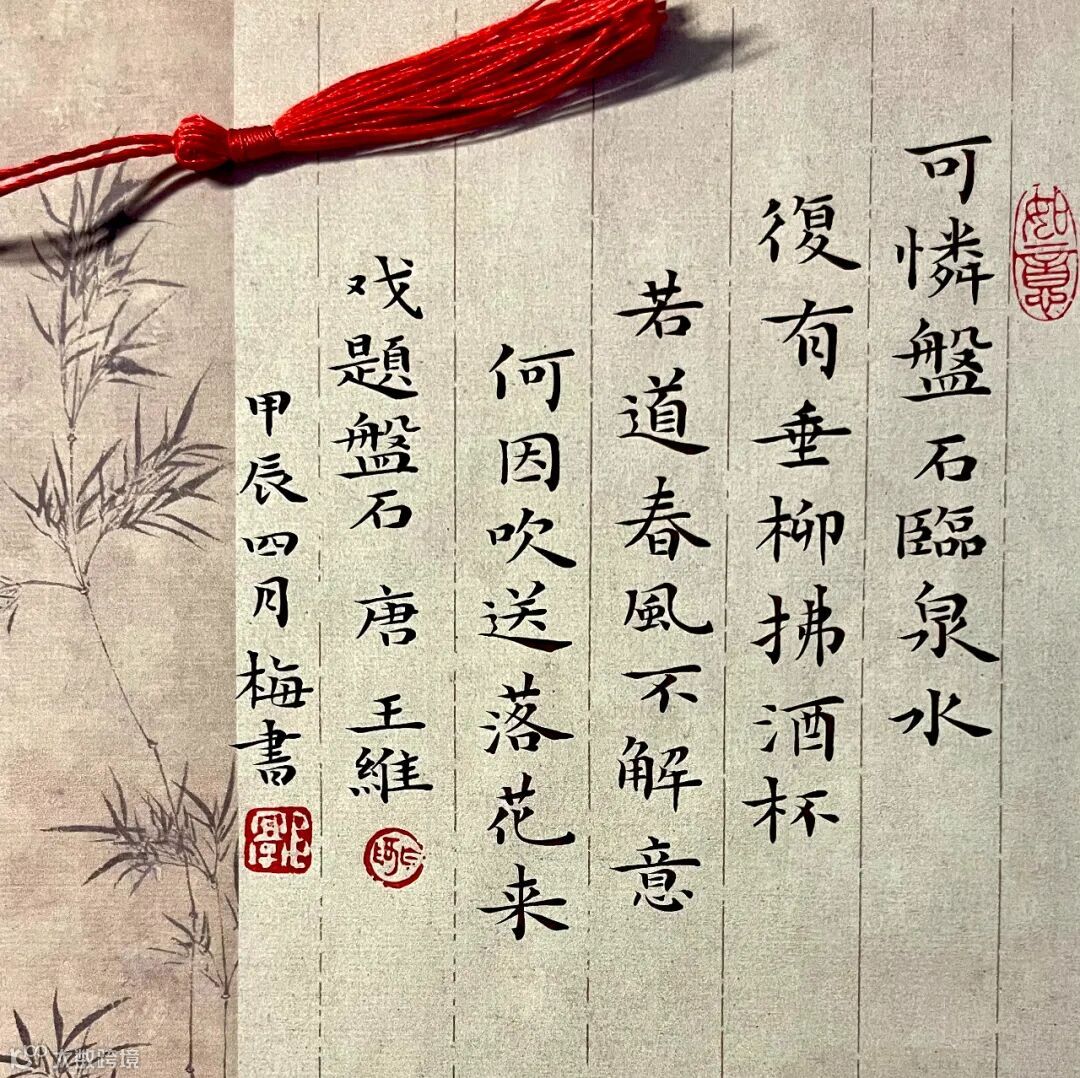 如意
可憐盤石臨泉水
復有垂柳拂酒杯
若道春風不解意
何因吹送落花来
戏題盤石 唐 王維
甲辰四月梅書
大数跨境